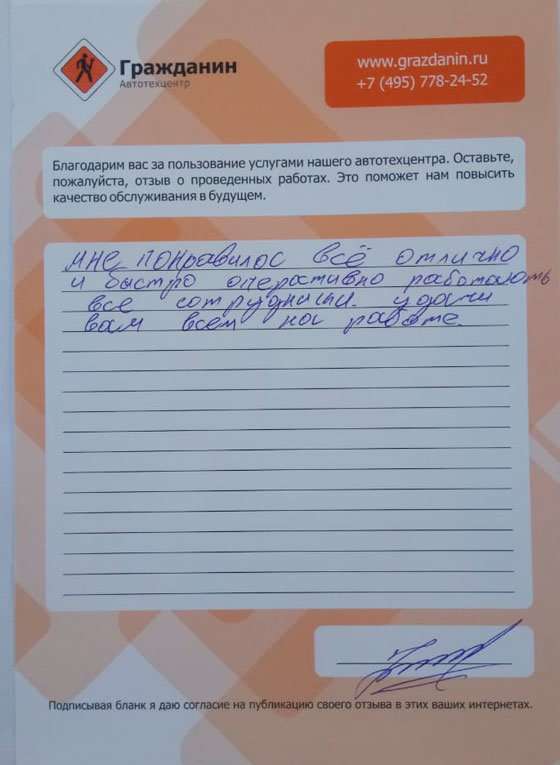 Гражданин
Автотехцентр
www.grazdanin.ru
+7 (495) 778-24-52
Благодарим вас за пользование услугами нашего автотехцентра. Оставьте,
пожалуйста, отзыв о проведенных работах. Это поможет нам повысить
качество обслуживания в будущем.
мне понравилос всё отлично
и быстро оперативно работают
все сотрудники. удачи
вам всем на работе.
Подписывая бланк я даю согласие на публикацию своего отзыва в этих ваших интернетах.